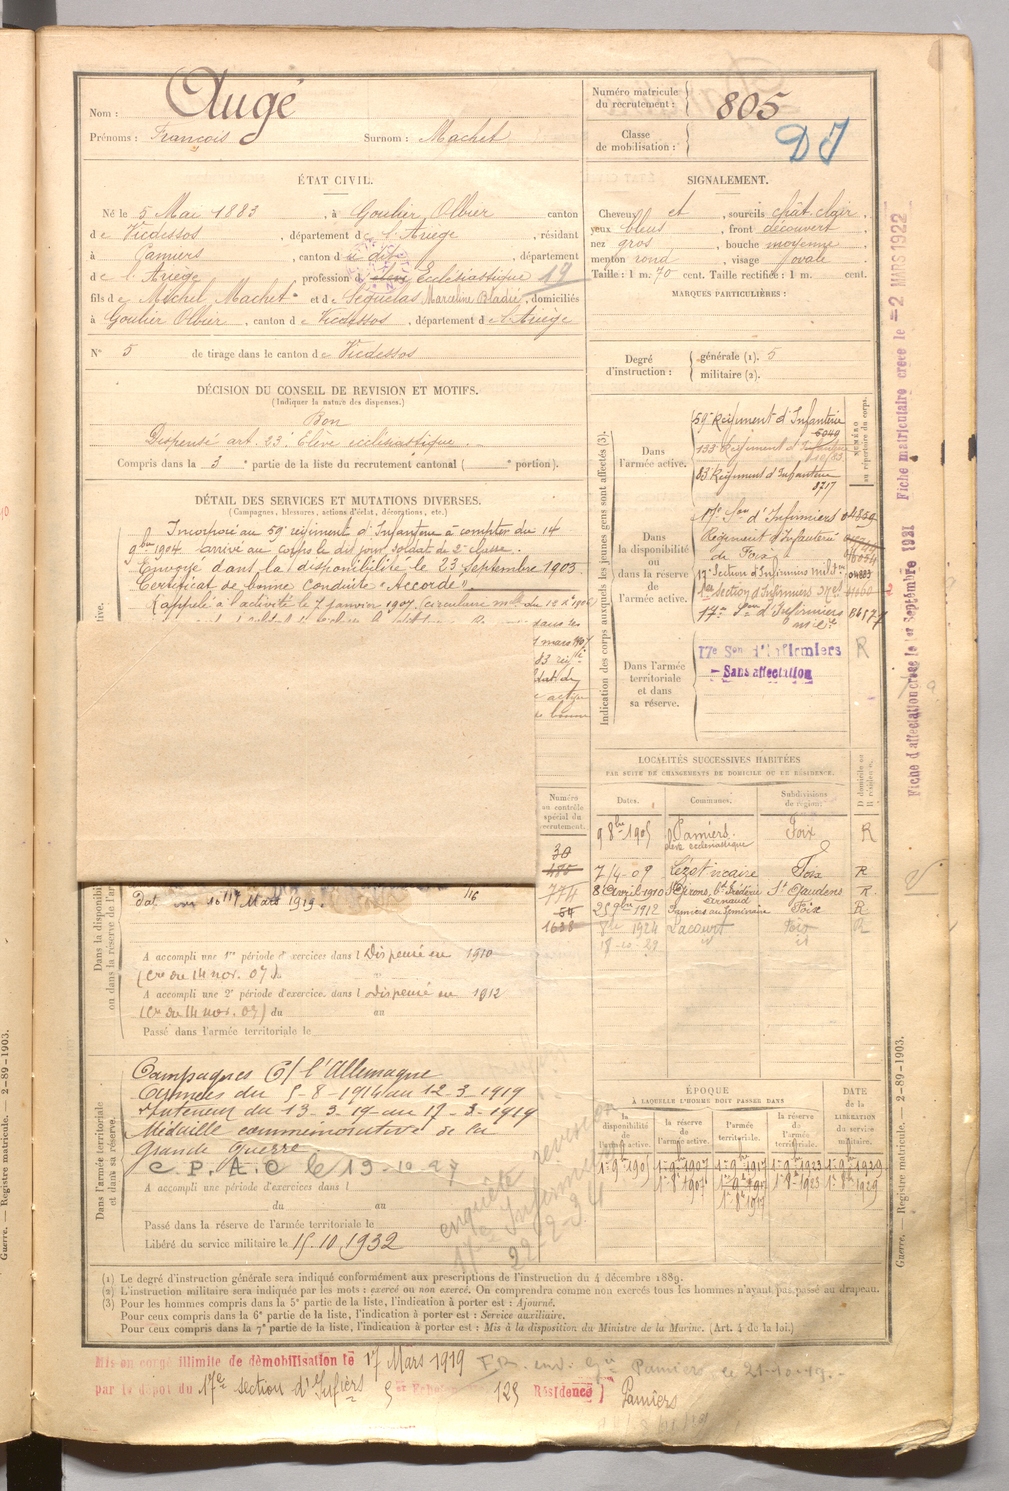 Nom : Augé
Prénoms : François Surnom : Machet
Numéro matricule du recrutement : 805
Classe de mobilisation :
DI
ÉTAT CIVIL.
Né le 5 Mai 1883, à Goulier Olbier canton
de Vicdessos, département de l'Ariège, résidant
à Pamiers, canton du dit, département
de l'Ariège, profession d élève Ecclésiastique 19
fils de Michel, Machet et de Séguélas Marceline Bladié, domiciliés
à Goulier Olbier, canton de Vicdessos, département de l'Ariège
N° 5 de tirage dans le canton de Vicdessos
SIGNALEMENT.
Cheveux et, sourcils chât clair,
yeux bleus, front découvert
nez gros, bouche moyenne,
menton rond, visage ovale.
Taille : 1 m. 70 cent. Taille rectifiée : 1 m. cent.
MARQUES PARTICULIÈRES :
Degré d'instruction : générale (1). 5
militaire (2).
DÉCISION DU CONSEIL DE REVISION ET MOTIFS.
(Indiquer la nature des dispenses.)
Bon
Dispensé art. 23. Elève ecclésiastique.
Compris dans la 3e partie de la liste du recrutement cantonal ( e portion).
DÉTAIL DES SERVICES ET MUTATIONS DIVERSES.
(Campagnes, blessures, actions d'éclat, décorations, etc.)
Incorporé au 59e régiment d'Infanterie à compter du 14
9bre 1904 arrivé au corps le dit jour soldat de 2e classe.
Envoyé dans la disponibilité le 23 septembre 1905
Certificat de bonne conduite "Accordé"
Rappelé à l'activité le 7 janvier 1907 (circulaire mlle du 12 Xbre 1906)
dans les
mars 1907
83 rég
bonne
Indication des corps auxquels les jeunes gens sont affectés (3).
NUMÉRO au répertoire du corps.
Dans l'armée active.
59e Régiment d'Infanterie
5049
133 Régiment d'Infanterie
83 Régiment d'Infanterie
8717
Dans la disponibilité ou dans la réserve de l'armée active.
17e Son d'Infirmiers 04859
Régiment d'Infanterie
de Foix
17e Section d'Infirmiers milres 04883
Section d'Infirmiers
17e Son d'Infirmiers
Dans l'armée territoriale et dans sa réserve.
17e Son d'Infirmiers R
Sans affectation
Fiche d'affectation créée le 1er Septembre 1921
Fiche matriculaire créée le -2 MARS 1922
LOCALITÉS SUCCESSIVES HABITÉES
PAR SUITE DE CHANGEMENTS DE DOMICILE OU DE RÉSIDENCE.
Dates. Communes. Subdivisions de région. D domicile ou R résidence.
9 8bre 1905 Pamiers. élève ecclésiastique Foix R
7/4-09 Lézat vicaire Foix R
8 Avril 1910 St Girons, bd Frédéric Arnaud St Gaudens R
25 9bre 1912 Pamiers au Séminaire Foix R
1924 Lacourt Foix R
18-10-29 id id
Numéro au contrôle spécial du recrutement.
30
774
54
1628
Dans la disponibilité ou dans la réserve de l'armée
Mars 1919.
A accompli une 1re période d'exercices dans l Dispensé en 1910
(Cre du 14 nov. 07)
A accompli une 2e période d'exercice. dans l Dispensé en 1912
(Cre du 14 nov. 07) du au
Passé dans l'armée territoriale le
Dans l'armée territoriale et dans sa réserve.
Campagnes C/ l'Allemagne
Armées du 5-8-1914 au 12-3-1919
Intérieur du 13-3-19 au 17-3-1919
Médaille commémorative de la
Grande Guerre
C.P.A.O le 13-10-27
A accompli une période d'exercices dans l
du au
Passé dans la réserve de l'armée territoriale le
Libéré du service militaire le 15.10.1932
enquête révision
17e Infirmiers
22-2-34
ÉPOQUE
À LAQUELLE L'HOMME DOIT PASSER DANS
la disponibilité de l'armée active. la réserve de l'armée active. l'armée territoriale. la réserve de l'armée territoriale. DATE de la LIBÉRATION du service militaire.
1er 9bre 1905 1er 9bre 1907 1er 9bre 1917 1er 9bre 1923 1er 9bre 1929
1er 8bre 1907 1er 9bre 1917 1er 8bre 1923 1er 8bre 1929
1er 8bre 1917
(1) Le degré d'instruction générale sera indiqué conformément aux prescriptions de l'instruction du 4 décembre 1889.
(2) L'instruction militaire sera indiquée par les mots : exercé ou non exercé. On comprendra comme non exercés tous les hommes n'ayant pas passé au drapeau.
(3) Pour les hommes compris dans la 5e partie de la liste, l'indication à porter est : Ajourné.
Pour ceux compris dans la 6e partie de la liste, l'indication à porter est : Service auxiliaire.
Pour ceux compris dans la 7e partie de la liste, l'indication à porter est : Mis à la disposition du Ministre de la Marine. (Art. 4 de la loi.)
Mis en congé illimité de démobilisation le 17 Mars 1919
par le dépôt du 17e section d'Infirs 5e Echelon 125 Résidence Pamiers
Pamiers le 21-10-19.
Guerre. — Registre matricule. — 2-89-1903.
Guerre. — Registre matricule. — 2-89-1903.